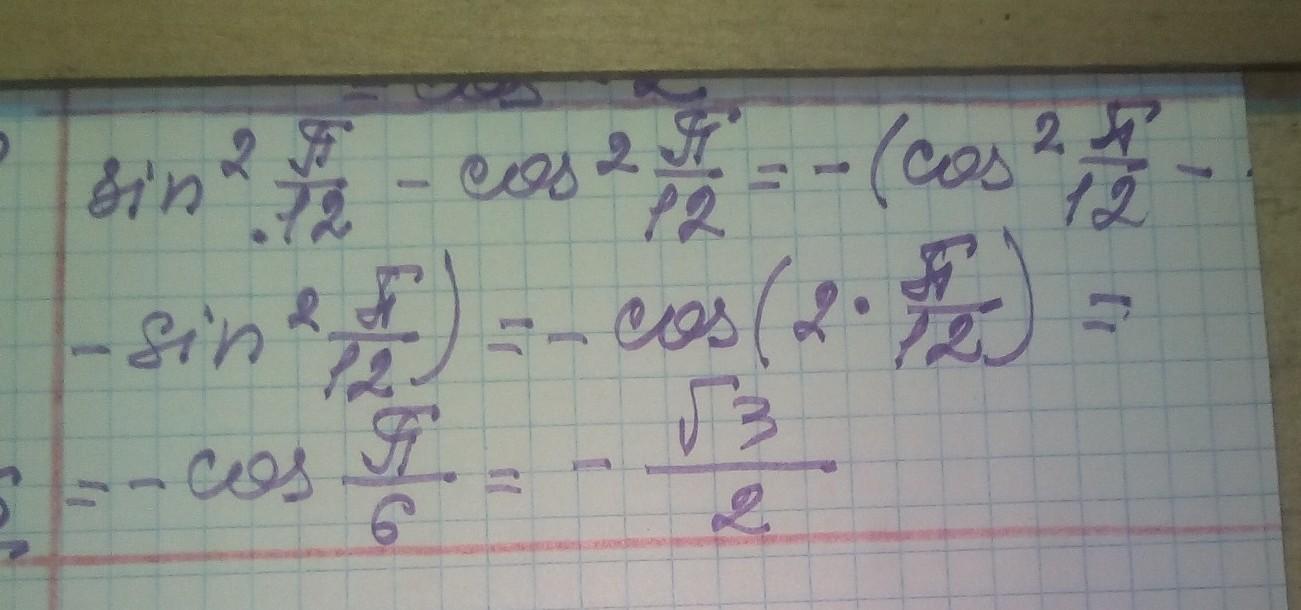 sin² π/12 - cos² π/12 = -(cos² π/12 -
- sin² π/12) = - cos(2 · π/12) =
= - cos π/6 = - √3/2